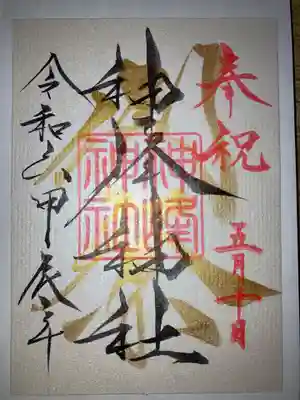 奉祝
五月十日
神社
令和六甲辰年